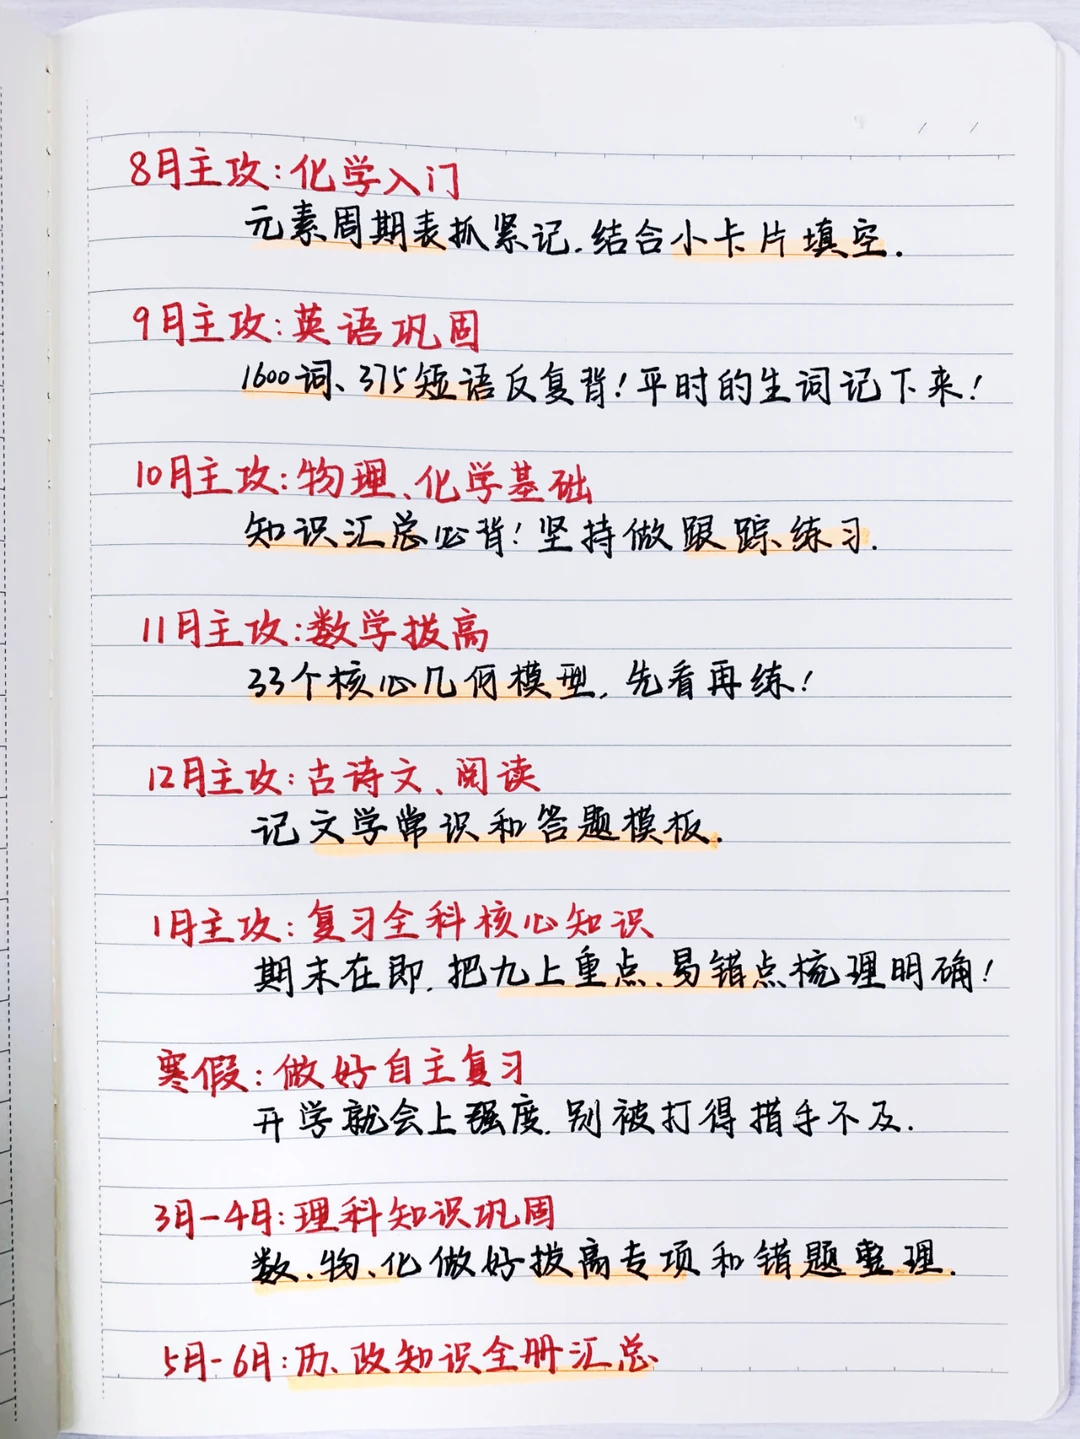 8月主攻:化学入门
元素周期表抓紧记.结合小卡片填空.
9月主攻:英语巩固
1600词、375短语反复背!平时的生词记下来!
10月主攻:物理、化学基础
知识汇总必背!坚持做跟踪练习.
11月主攻:数学拔高
33个核心几何模型,先看再练!
12月主攻:古诗文、阅读
记文学常识和答题模板.
1月主攻:复习全科核心知识
期末在即.把九上重点、易错点梳理明确!
寒假:做好自主复习
开学就会上强度.别被打得措手不及.
3月-4月:理科知识巩固
数、物、化做好拔高专项和错题整理.
5月-6月:历、政知识全册汇总